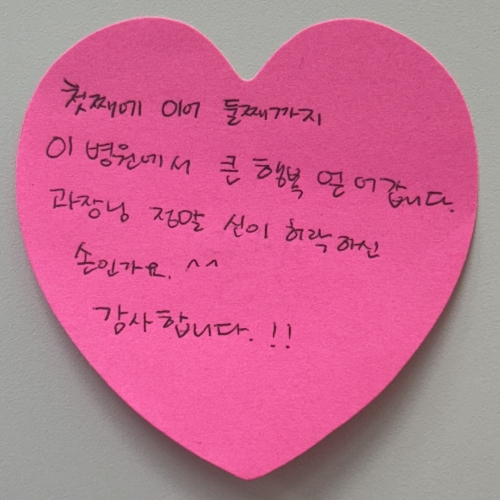 첫째에 이어 둘째까지
이 병원에서 큰 행복 얻어갑니다.
과장님 정말 신이 허락하신
손인가요. ^^
감사합니다. !!